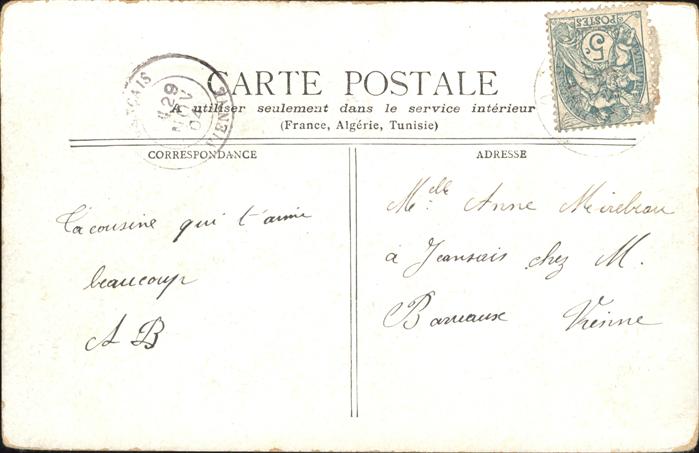 CARTE POSTALE
A utiliser seulement dans le service intérieur
(France, Algérie, Tunisie)
CORRESPONDANCE
Ta cousine qui t'aime
beaucoup
A B
ADRESSE
Melle Anne Mirebeau
à Jeansais chez M.
Barreaux Vienne
POSTES
5c
29
NOV
04
VIENNE